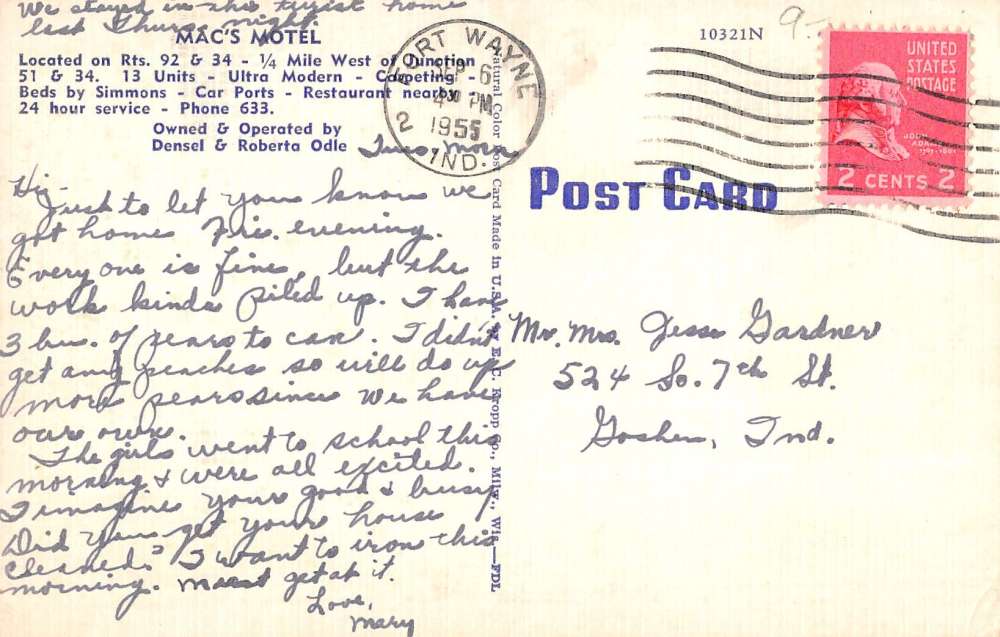 We stayed in this tourist home
last Thurs. night.
MAC'S MOTEL
Located on Rts. 92 & 34 - ¼ Mile West of Junction
51 & 34. 13 Units - Ultra Modern - Carpeting -
Beds by Simmons - Car Ports - Restaurant nearby -
24 hour service - Phone 633.
Owned & Operated by
Densel & Roberta Odle
Tues. Morn
Hi-
Just to let you know we
got home Fri. evening.
Everyone is fine, but the
work kinda piled up. I have
3 bu. of pears to can. I didn't
get any peaches so will do up
more pears since we have
our own.
The girls went to school this
morning & were all excited.
I imagine your good & busy
Did you get your house
cleaned? I want to iron this
morning. Must get at it.
Love,
Mary
Natural Color Post Card Made in U.S.A. by E. C. Kropp Co., Milw., Wis.—FDL
FORT WAYNE
SEP 6
4 30 PM
1955
2
IND.
10321N
9-
UNITED
STATES
POSTAGE
JOHN
ADAMS
2 CENTS 2
POST CARD
Mr. Mrs. Jesse Gardner
524 So. 7th St.
Goshen, Ind.